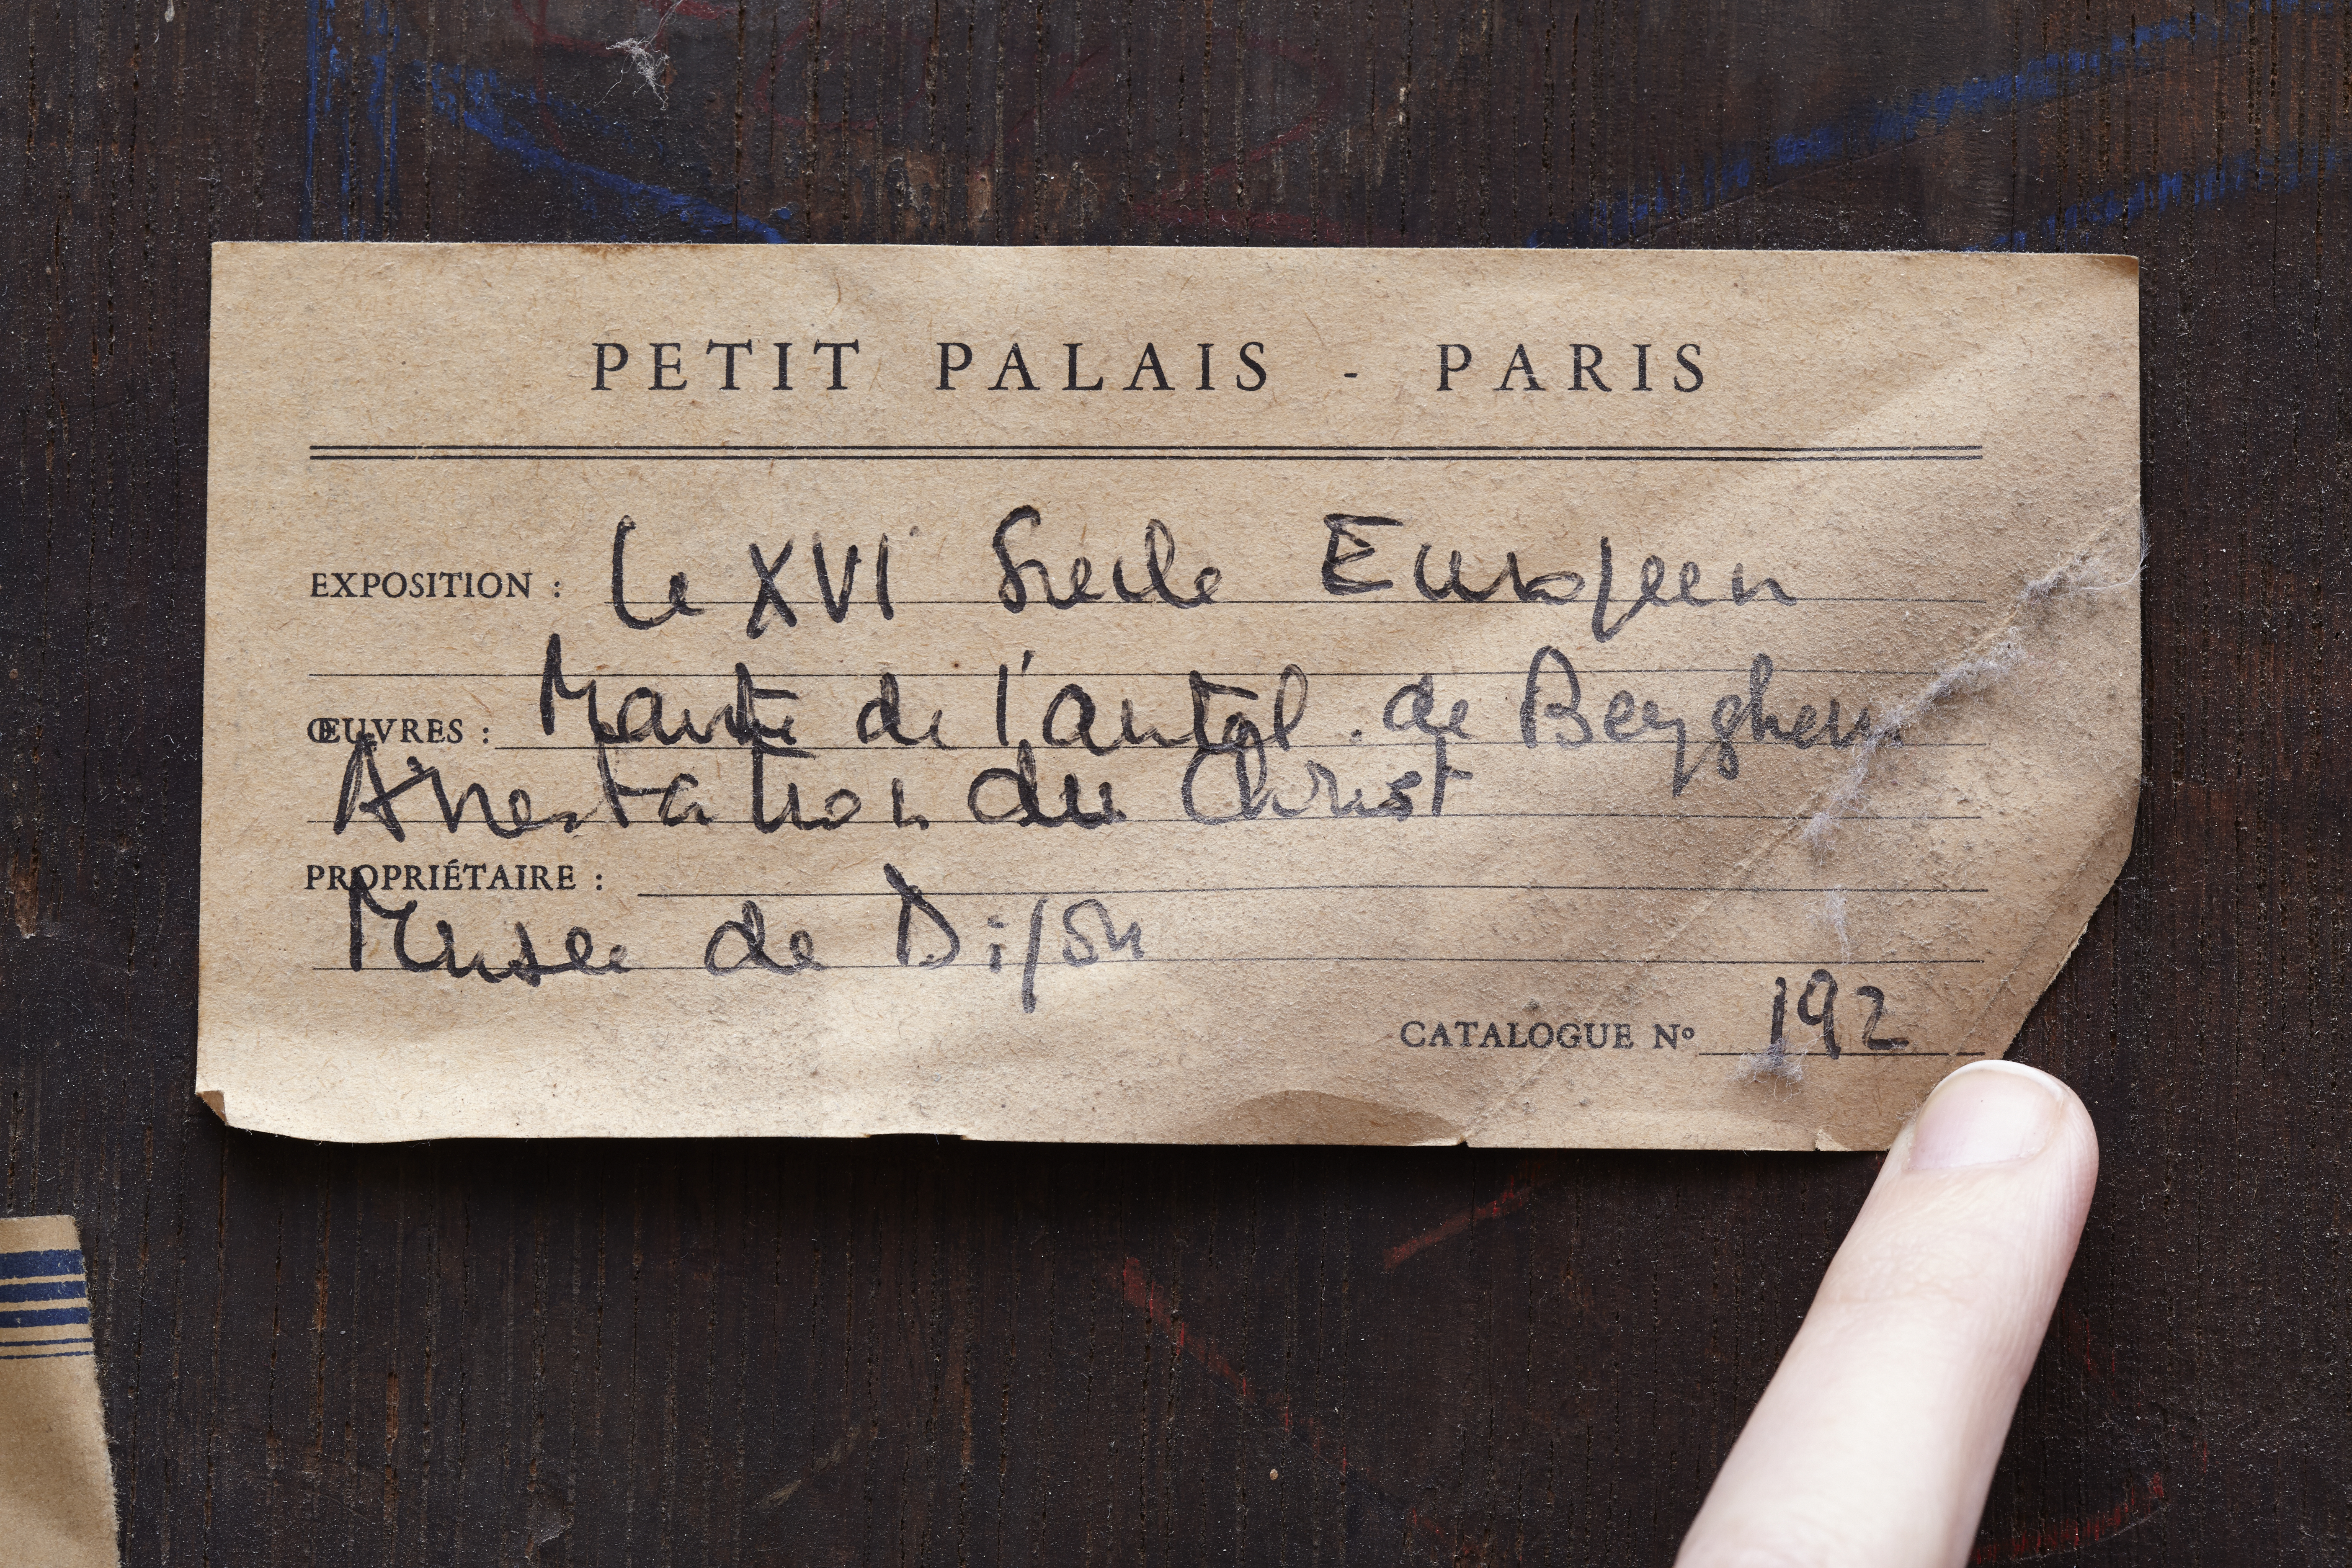 PETIT PALAIS - PARIS
EXPOSITION : Le XVI Siecle Européen
ŒUVRES : Maitre de l'autel de Beyghem
Arrestation du Christ
PROPRIÉTAIRE :
Musée de Dijon
CATALOGUE Nº 192